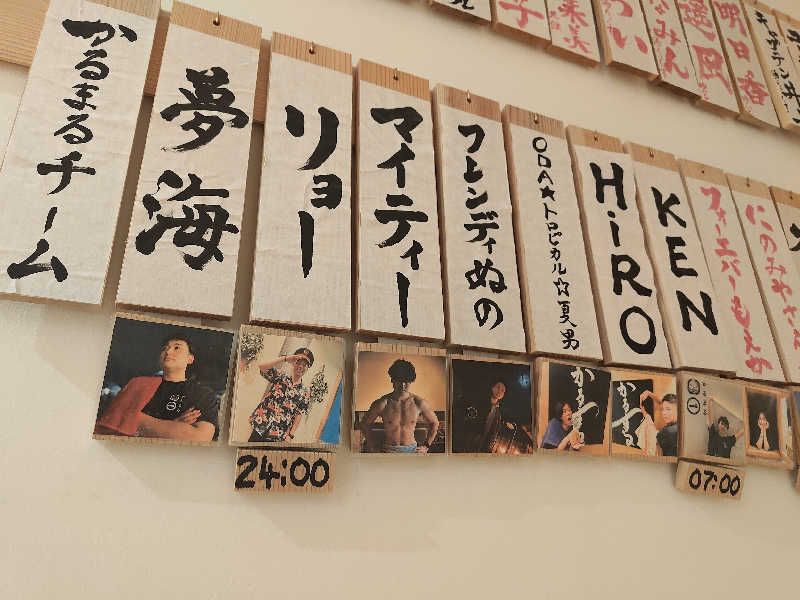 かるまるチーム
夢海
リョー
マイティー
フレンディぬの
ODA★トロピカル☆夏男
HiRO
KEN
フォーエバーもえか
にのみやさえ
明日香
かるまる
かるまる
24:00
07:00